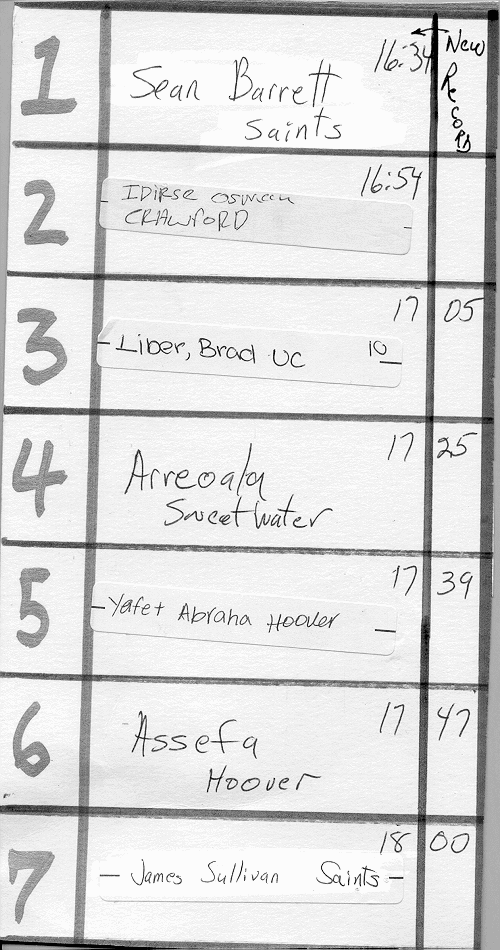 1 16:34 ← New
Sean Barrett Record
Saints
2 16:54
IDirse osman
CRAWFORD
3 17 05
Liber, Brad UC 10
4 17 25
Arreoala
Sweetwater
5 17 39
Yafet Abraha Hoover
6 17 47
Assefa
Hoover
7 18 00
James Sullivan Saints